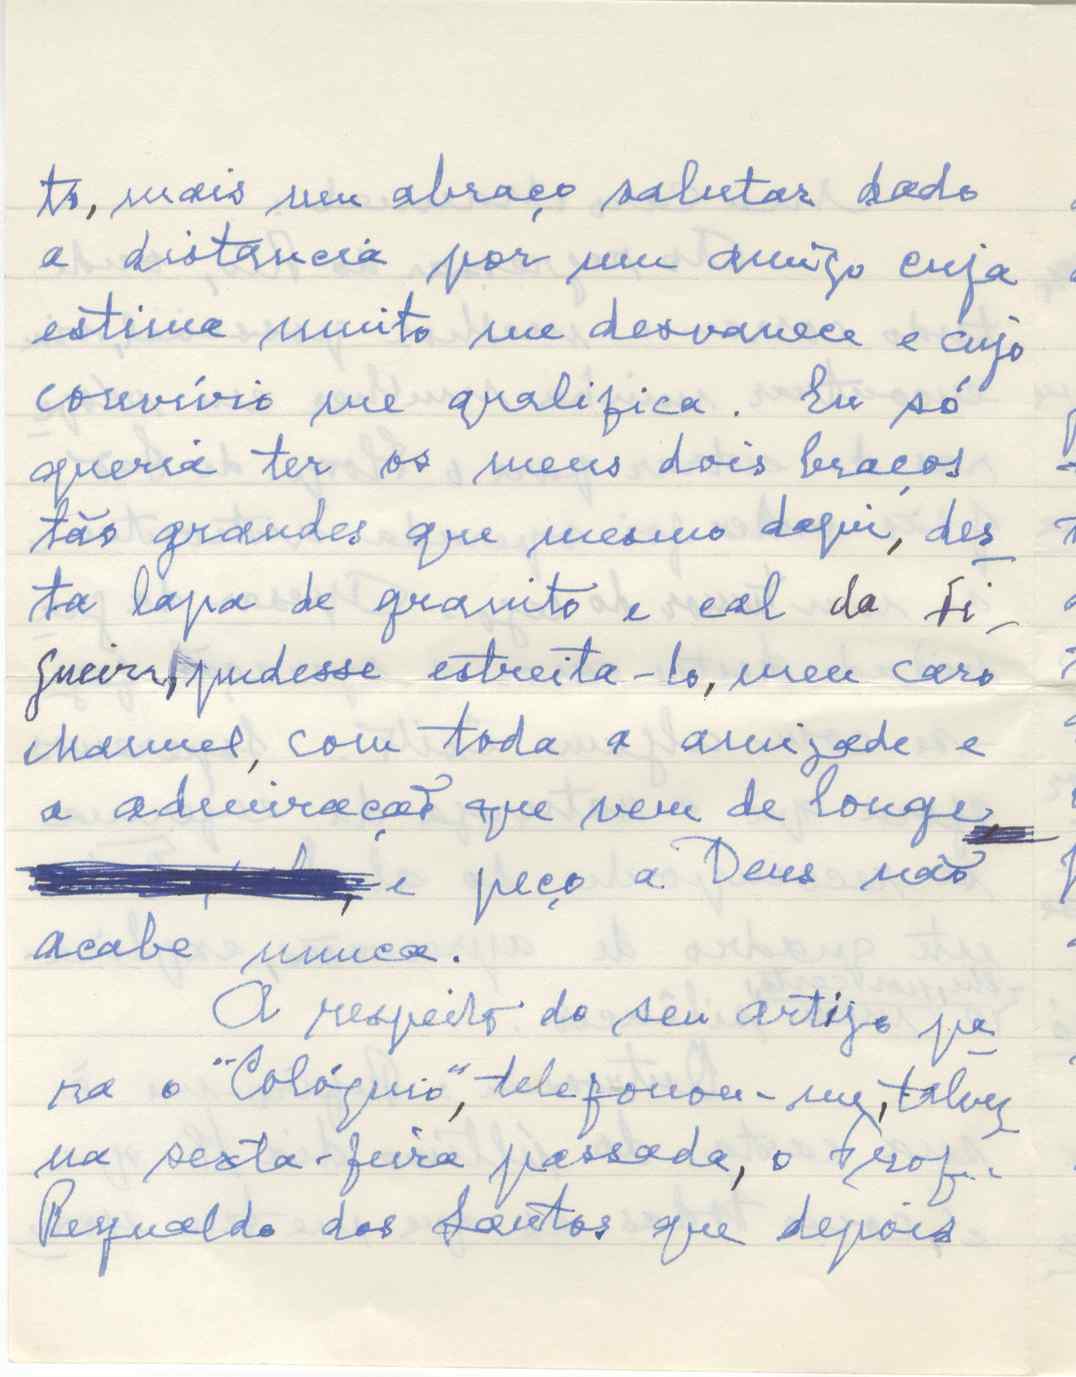 to, mais um abraço salutar dado
a distância por um amigo cuja
estima muito me desvanece e cujo
convívio me qualifica. Eu só
queria ter os meus dois braços
tão grandes que mesmo daqui, des-
ta lapa de granito e cal da Fi-
gueira, pudesse estreita-lo, meu caro
Manuel, com toda a amizade e
a admiração que vem de longe
e peço a Deus não
acabe nunca.
A respeito do seu artigo pa-
ra o "Colóquio", telefonou-me, talvez
na sexta-feira passada, o Prof.
Reynaldo dos Santos que depois